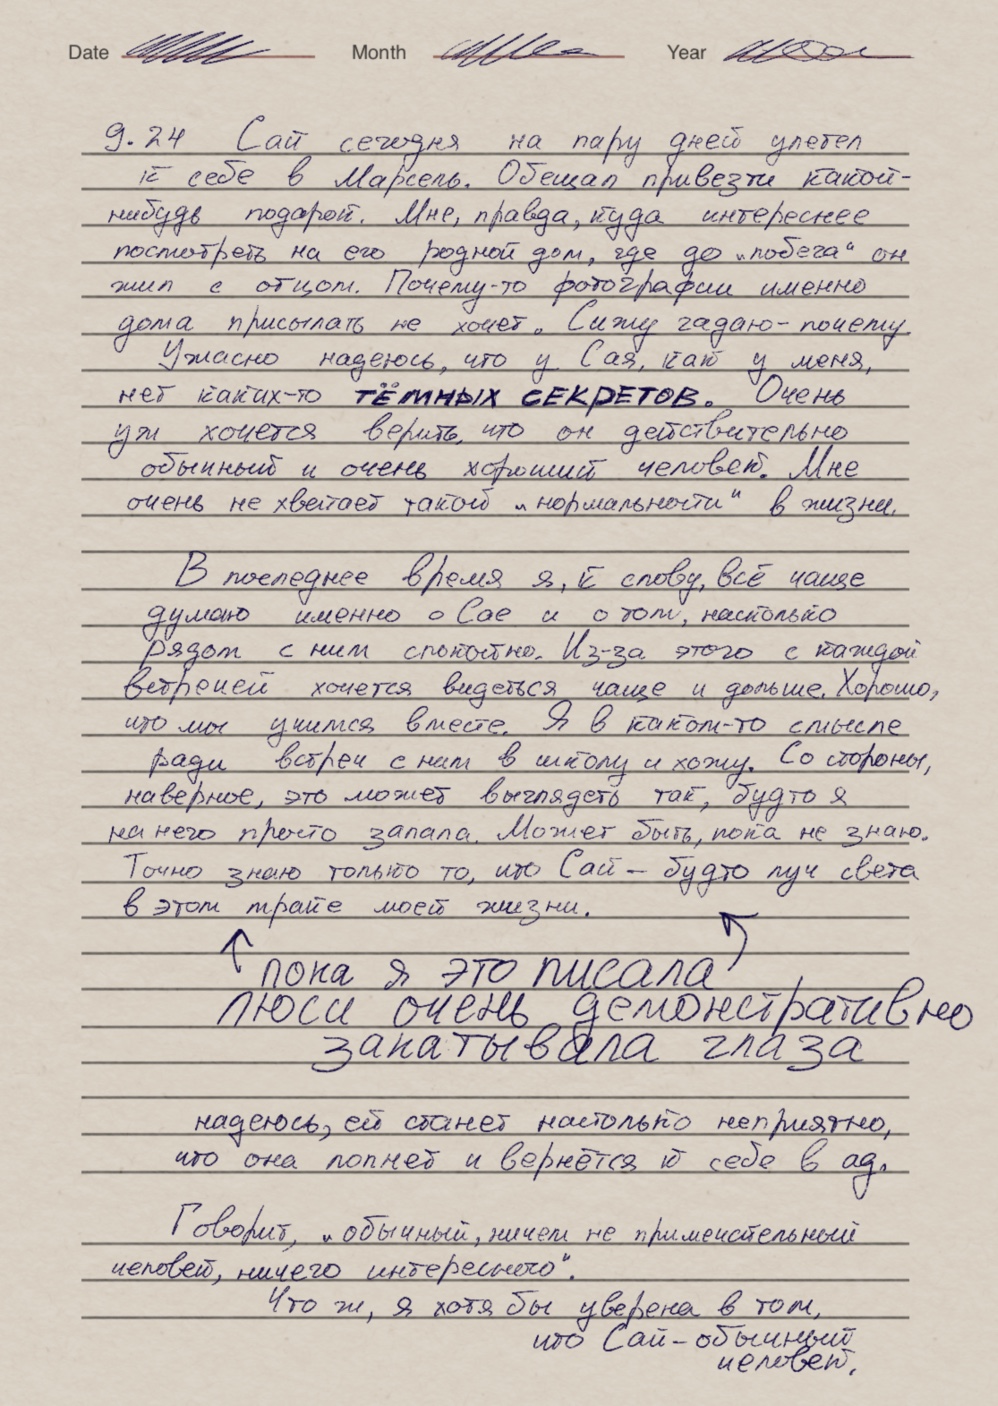 Date Month Year
9.24 Сай сегодня на пару дней улетел
к себе в Марсель. Обещал привезти какой-
нибудь подарок. Мне, правда, куда интереснее
посмотреть на его родной дом, где до „побега“ он
жил с отцом. Почему-то фотографии именно
дома присылать не хочет. Сижу гадаю - почему.
Ужасно надеюсь, что у Сая, как у меня,
нет каких-то ТЁМНЫХ СЕКРЕТОВ. Очень
уж хочется верить, что он действительно
обычный и очень хороший человек. Мне
очень не хватает такой „нормальности“ в жизни.
В последнее время я, к слову, всё чаще
думаю именно о Сае и о том, насколько
рядом с ним спокойно. Из-за этого с каждой
встречей хочется видеться чаще и дольше. Хорошо,
что мы учимся вместе. Я в каком-то смысле
ради встреч с ним в школу и хожу. Со стороны,
наверное, это может выглядеть так, будто я
на него просто запала. Может быть, пока не знаю.
Точно знаю только то, что Сай - будто луч света
в этом мраке моей жизни.
пока я это писала
люси очень демонстративно
закатывала глаза
надеюсь, ей станет настолько неприятно,
что она лопнет и вернётся к себе в ад.
Говорит, „обычный, ничем не примечательный
человек, ничего интересного“.
Что ж, я хотя бы уверена в том,
что Сай - обычный
человек.